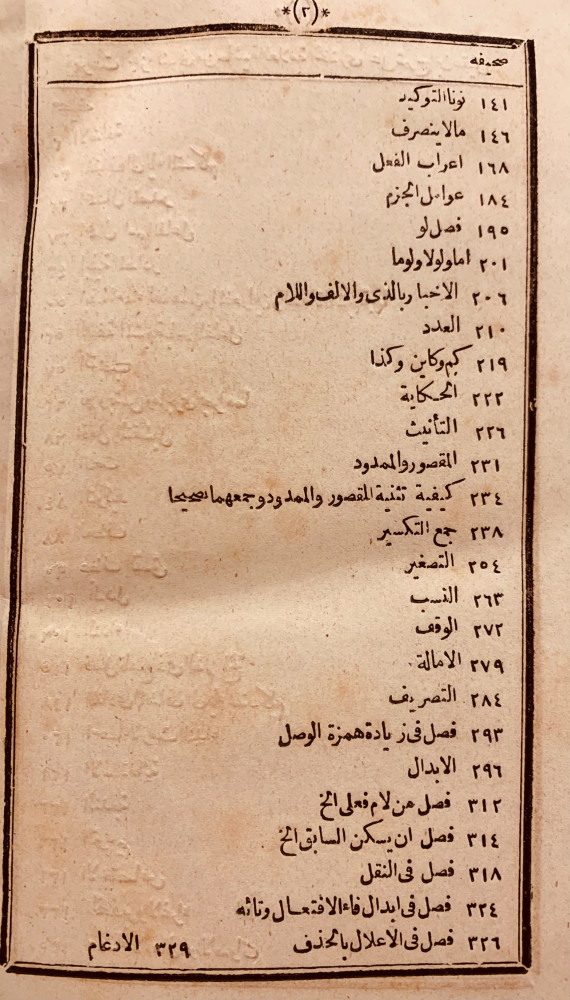 *(٢)*
صحيفه
١٤١ نونا التوكيد
١٤٦ مالا ينصرف
١٦٨ اعراب الفعل
١٨٤ عوامل الجزم
١٩٥ فصل لو
٢٠١ اما ولولا ولوما
٢٠٦ الاخبار بالذى والالف واللام
٢١٠ العدد
٢١٩ كم وكاين وكذا
٢٢٢ الحكاية
٢٢٦ التأنيث
٢٣١ المقصور والممدود
٢٣٤ كيفية تثنية المقصور والممدود وجمعهما تصحيحا
٢٣٨ جمع التكسير
٢٥٤ التصغير
٢٦٣ النسب
٢٧٢ الوقف
٢٧٩ الامالة
٢٨٤ التصريف
٢٩٣ فصل فى زيادة همزة الوصل
٢٩٦ الابدال
٣١٢ فصل من لام فعلى الخ
٣١٤ فصل ان يسكن السابق الخ
٣١٨ فصل فى النقل
٣٢٤ فصل فى ابدال فاء الافتعال وتائه
٣٢٦ فصل فى الاعلال بالحذف ٣٢٩ الادغام